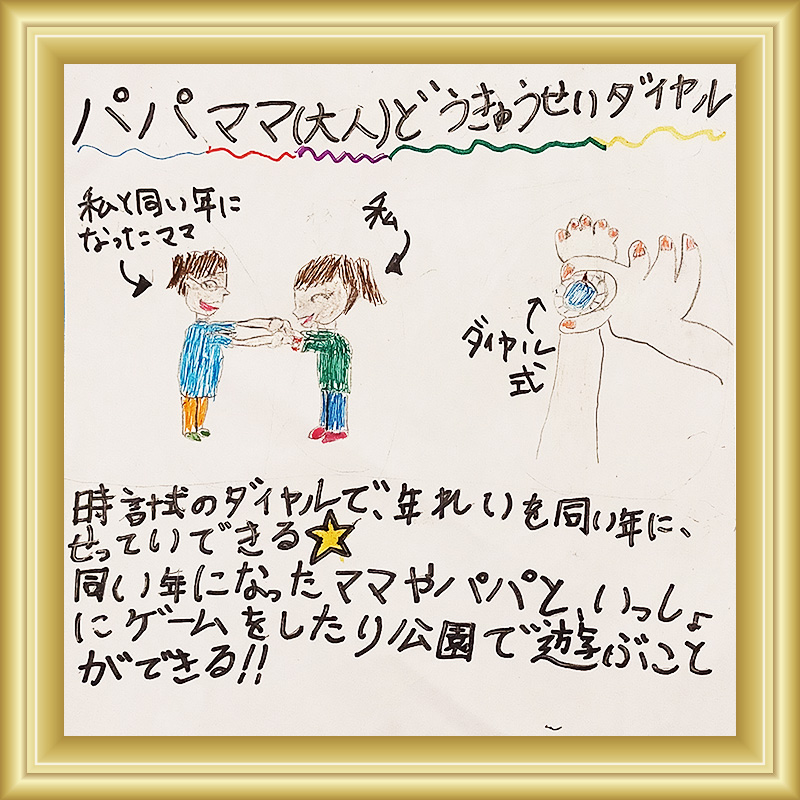 パパママ(大人)どうきゅうせいダイヤル
私と同い年に
なったママ
私
ダイヤル
式
時計式のダイヤルで、年れいを同い年に、
せっていできる
同い年になったママやパパと、いっしょ
にゲームをしたり公園で遊ぶこと
ができる!!